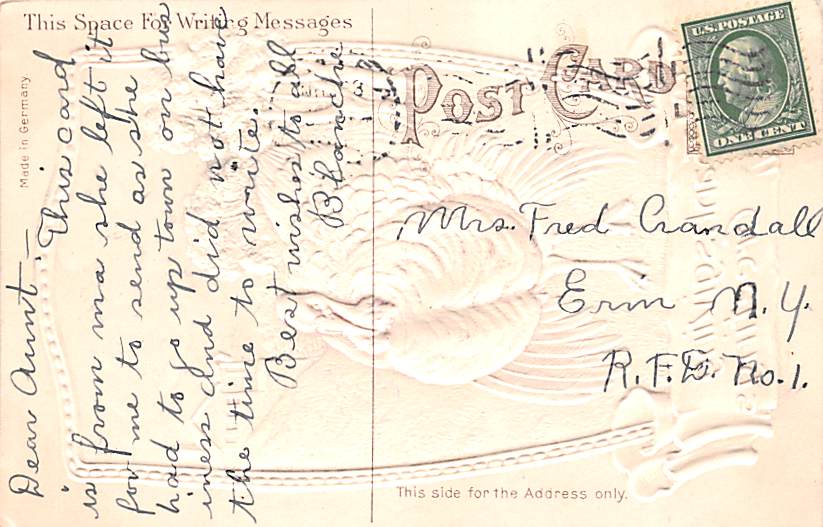 This Space For Writing Messages
Made in Germany
Dear Aunt —
This card
is from ma she left it
for me to send as she
had to go up town on bus
iness and did not have
the time to write.
Best wishes to all
Blanche
POST CARD
U.S. POSTAGE
ONE CENT
Mrs. Fred Crandall
Erin N.Y.
R.F.D. No. 1.
This side for the Address only.